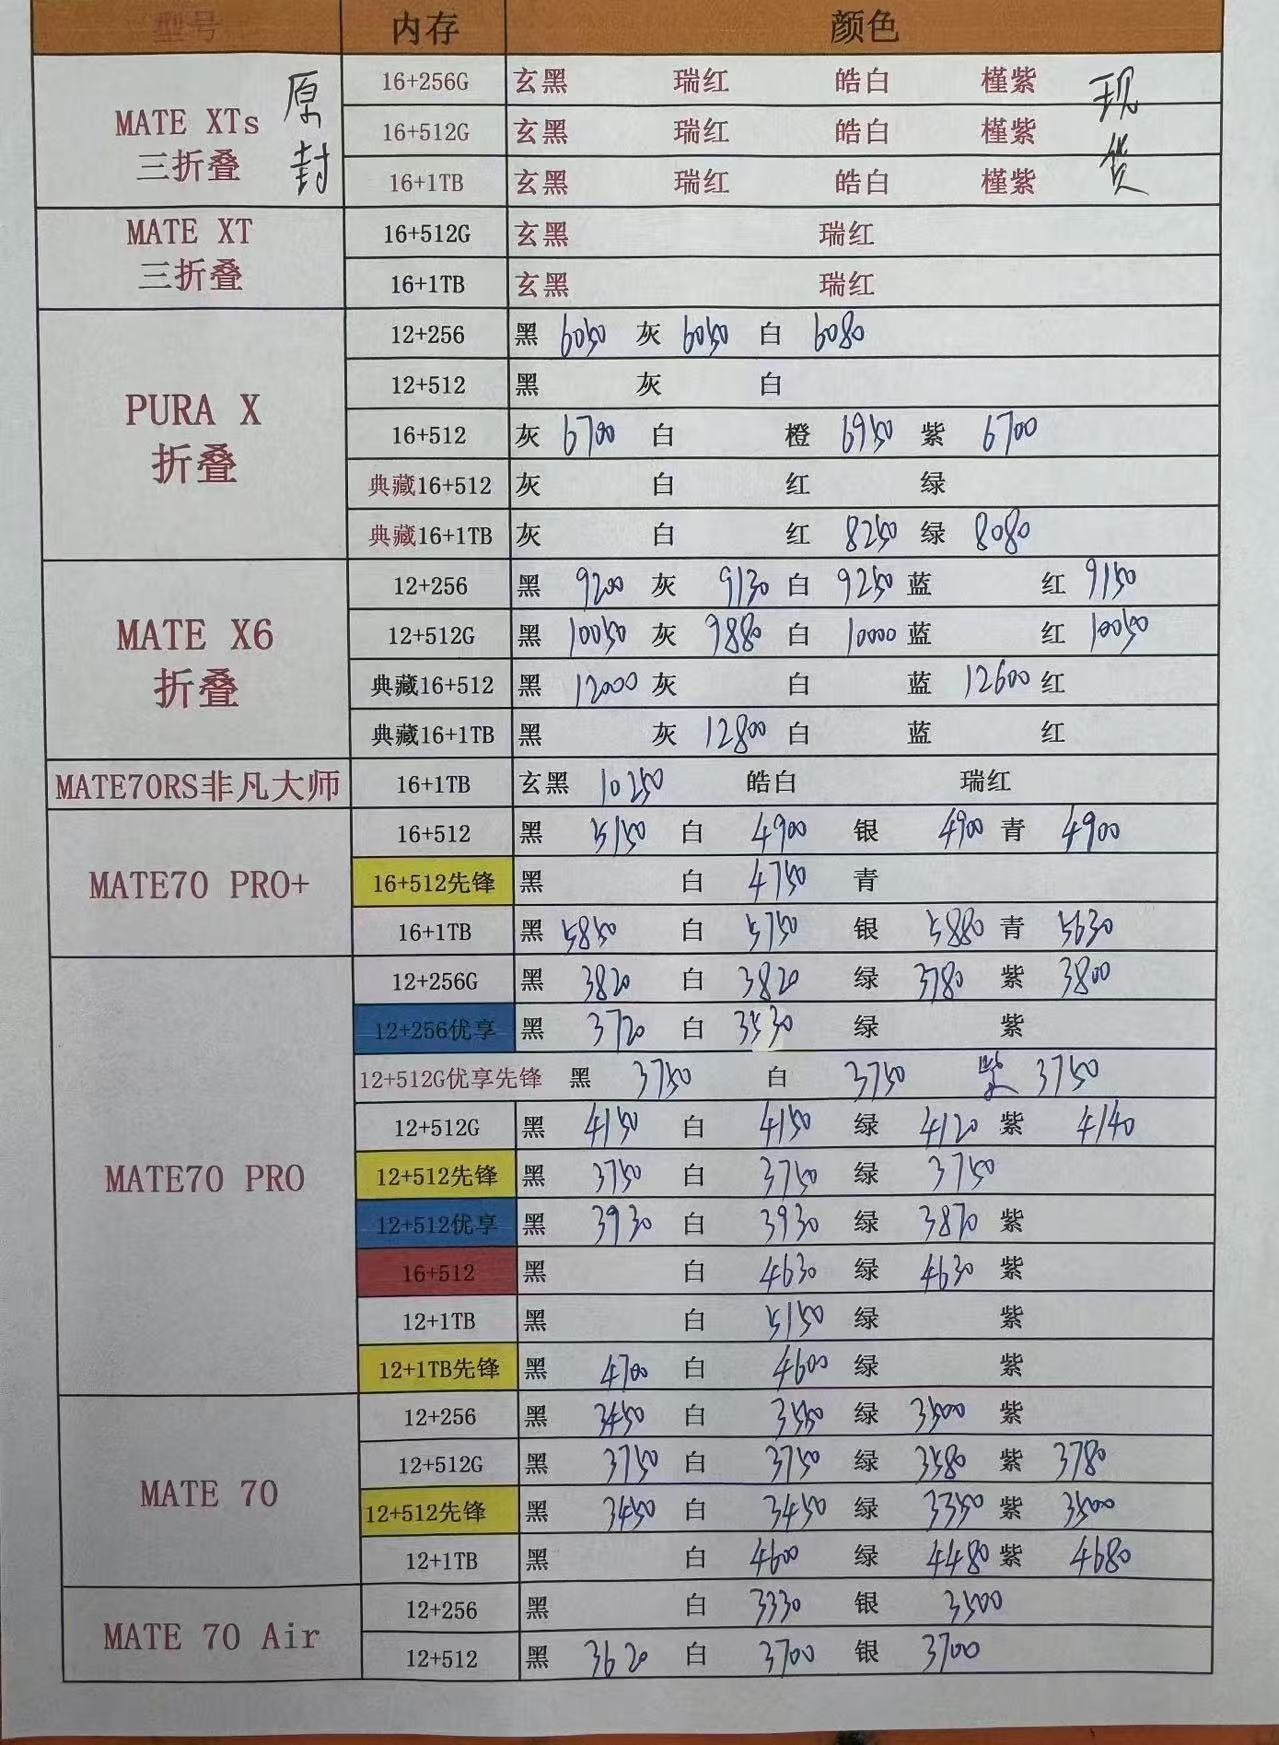 型号 内存 颜色
MATE XTs 三折叠 原封 现货
16+256G 玄黑 瑞红 皓白 槿紫
16+512G 玄黑 瑞红 皓白 槿紫
16+1TB 玄黑 瑞红 皓白 槿紫
MATE XT 三折叠
16+512G 玄黑 瑞红
16+1TB 玄黑 瑞红
PURA X 折叠
12+256 黑 6050 灰 6050 白 6080
12+512 黑 灰 白
16+512 灰 6700 白 橙 6950 紫 6700
典藏16+512 灰 白 红 绿
典藏16+1TB 灰 白 红 8250 绿 8080
MATE X6 折叠
12+256 黑 9200 灰 9130 白 9250 蓝 红 9150
12+512G 黑 10050 灰 9880 白 10000 蓝 红 10050
典藏16+512 黑 12000 灰 白 蓝 12600 红
典藏16+1TB 黑 灰 12800 白 蓝 红
MATE70RS非凡大师 16+1TB 玄黑 10250 皓白 瑞红
MATE70 PRO+
16+512 黑 5150 白 4900 银 4900 青 4900
16+512先锋 黑 白 4750 青
16+1TB 黑 5850 白 5750 银 5880 青 5630
MATE70 PRO
12+256G 黑 3820 白 3820 绿 3780 紫 3800
12+256优享 黑 3720 白 3530 绿 紫
12+512G优享先锋 黑 3750 白 3750 紫 3750
12+512G 黑 4150 白 4150 绿 4120 紫 4140
12+512先锋 黑 3750 白 3750 绿 3750
12+512优享 黑 3930 白 3930 绿 3870 紫
16+512 黑 白 4630 绿 4630 紫
12+1TB 黑 白 5150 绿 紫
12+1TB先锋 黑 4700 白 4600 绿 紫
MATE 70
12+256 黑 3450 白 3550 绿 3500 紫
12+512G 黑 3750 白 3750 绿 3580 紫 3780
12+512先锋 黑 3450 白 3450 绿 3350 紫 3500
12+1TB 黑 白 4600 绿 4480 紫 4680
MATE 70 Air
12+256 黑 白 3330 银 3500
12+512 黑 3620 白 3700 银 3700